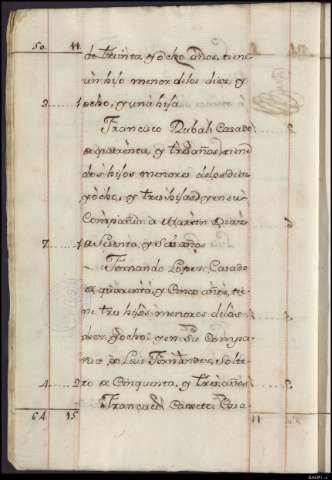 50. 44. de treinta y ocho años, tiene
un hijo menor de los diez y
2 1 ocho, y una hija
Francisco Dubal Casado
de quarenta, y tres años, tiene
dos hijos menores de los diez
y ocho, y tres hijas, y en su
Compañia a Martin
7. 1 de Setenta, y Seis años
Fernando Lopez, Casado
de quarenta, y Cinco años, tie
ne tres hijos menores de los
diez y ocho, y en su Compa
ñia a Luis Fernandez, Solte
4 2 ro de Cinquenta, y tres años
64. 45. Casa